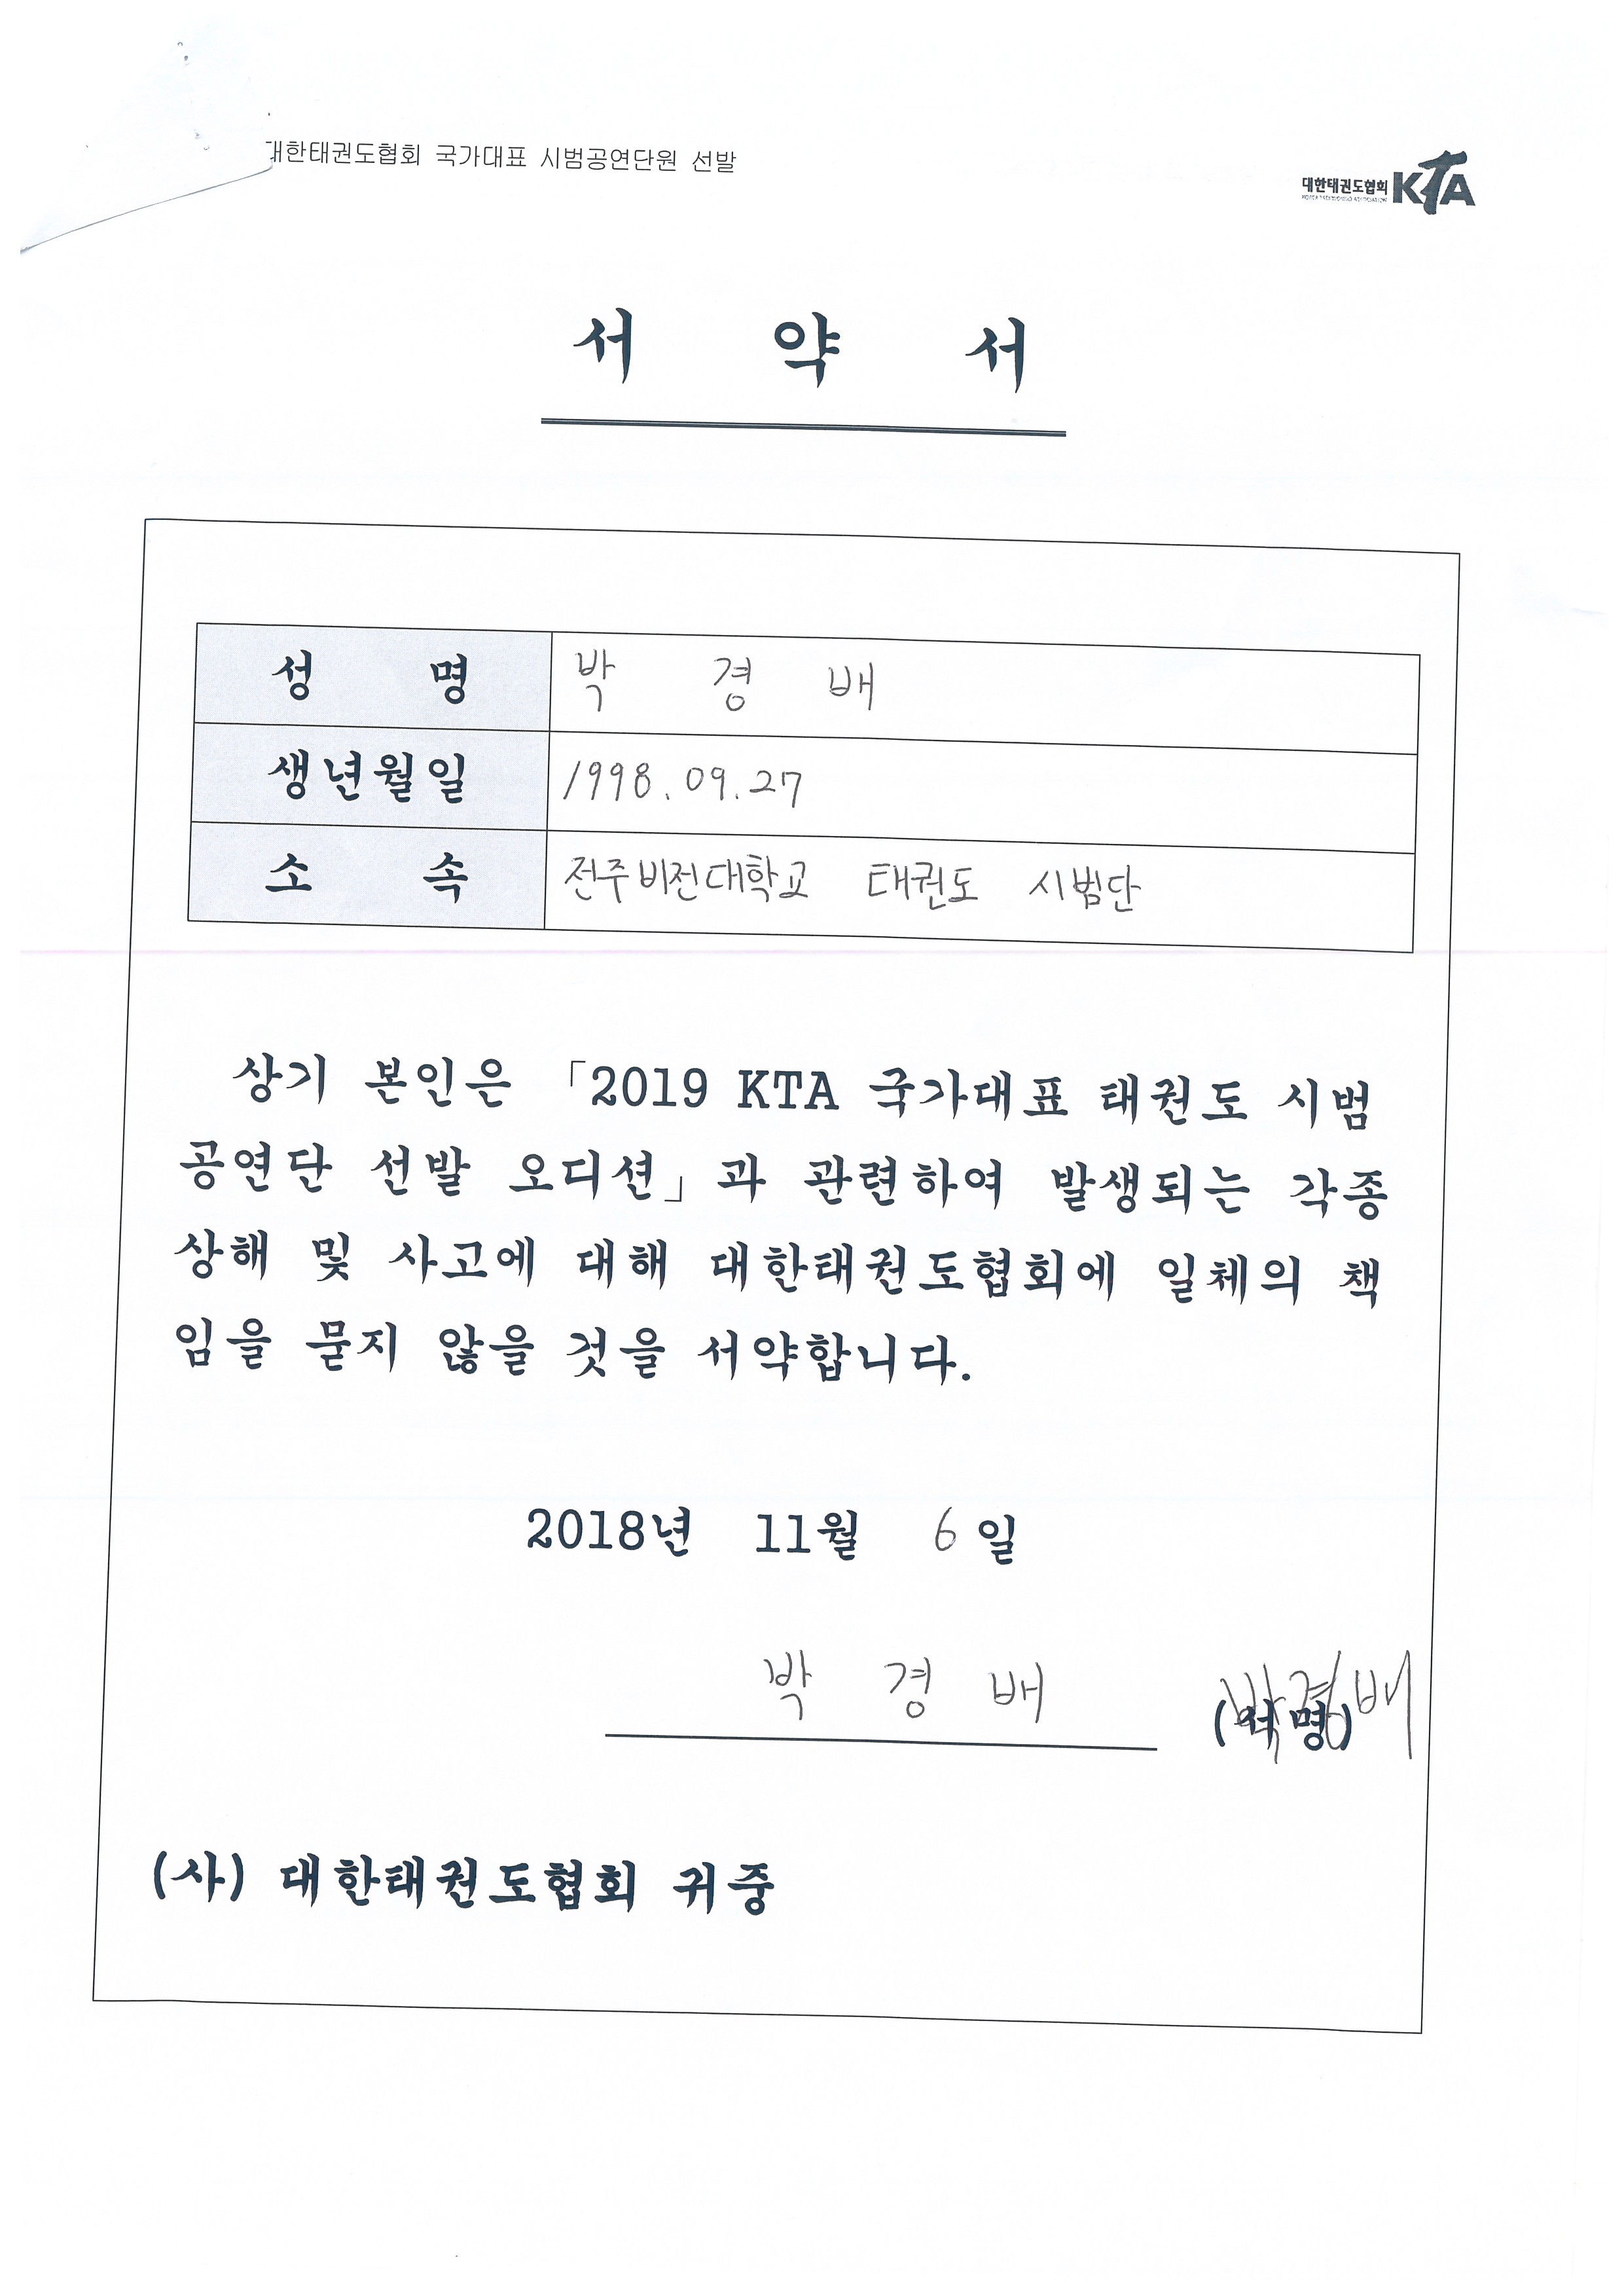 대한태권도협회 국가대표 시범공연단원 선발
대한태권도협회 KTA
서 약 서
성 명 박 경 배
생년월일 1998.09.27
소 속 전주비전대학교 태권도 시범단
상기 본인은 「2019 KTA 국가대표 태권도 시범
공연단 선발 오디션」과 관련하여 발생되는 각종
상해 및 사고에 대해 대한태권도협회에 일체의 책
임을 묻지 않을 것을 서약합니다.
2018년 11월 6일
박 경 배 (서명) 박경배
(사) 대한태권도협회 귀중